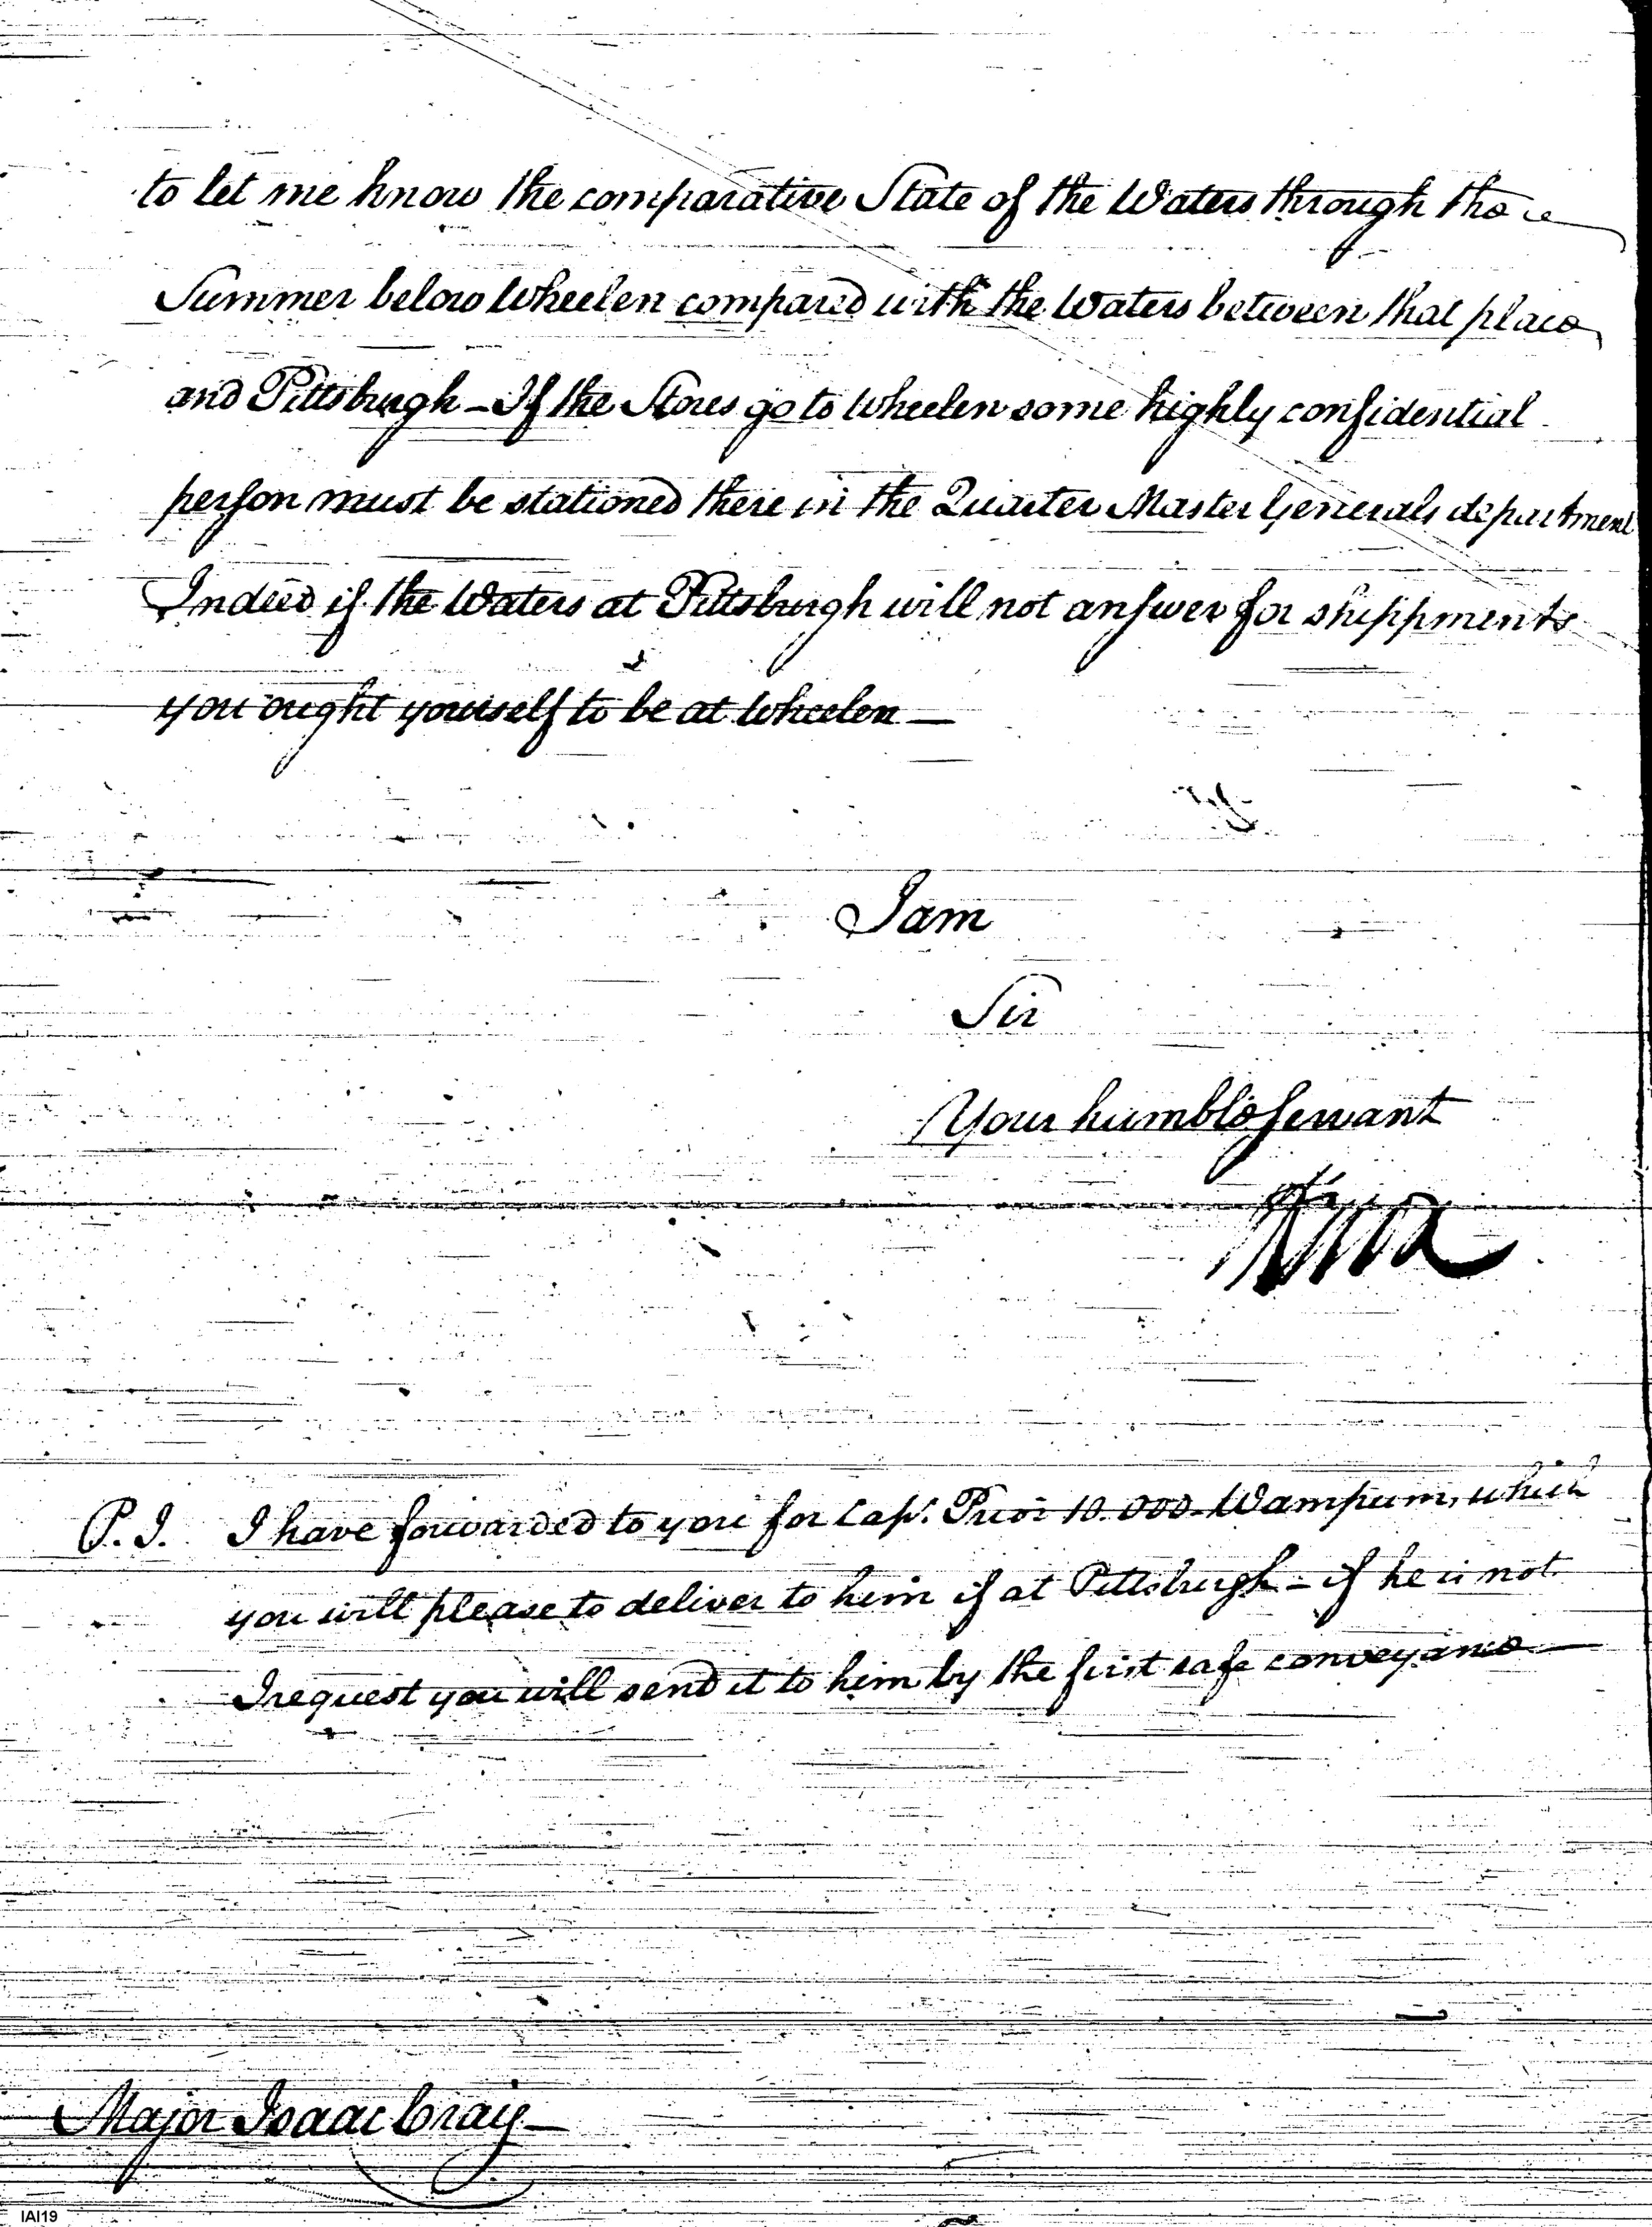 to let me know the comparative State of the Waters through the
Summer below Wheelen compared with the Waters between that place
and Pittsburgh – If the Stores go to Wheelen some highly confidential
person must be stationed there in the Quarter Master Generals department
Indeed if the Waters at Pittsburgh will not answer for shippments
you ought yourself to be at Wheelen —
I am
Sir
Your humble Servant
HKnox
P.S. I have forwarded to you for Capt. Prior 10.000 Wampum, which
you will please to deliver to him if at Pittsburgh – if he is not
I request you will send it to him by the first safe conveyance —
Major Isaac Craig —
IAI19